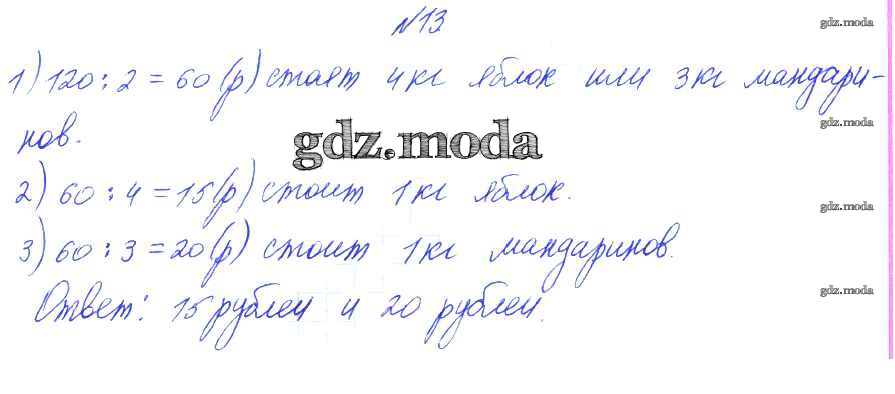 №13
gdz.moda
1) 120 : 2 = 60 (р) стоят 4 кг яблок или 3 кг мандари-
gdz.moda
нов.
gdz.moda
gdz.moda
2) 60 : 4 = 15 (р) стоит 1 кг яблок.
gdz.moda
3) 60 : 3 = 20 (р) стоит 1 кг мандаринов.
gdz.moda
Ответ: 15 рублей и 20 рублей.